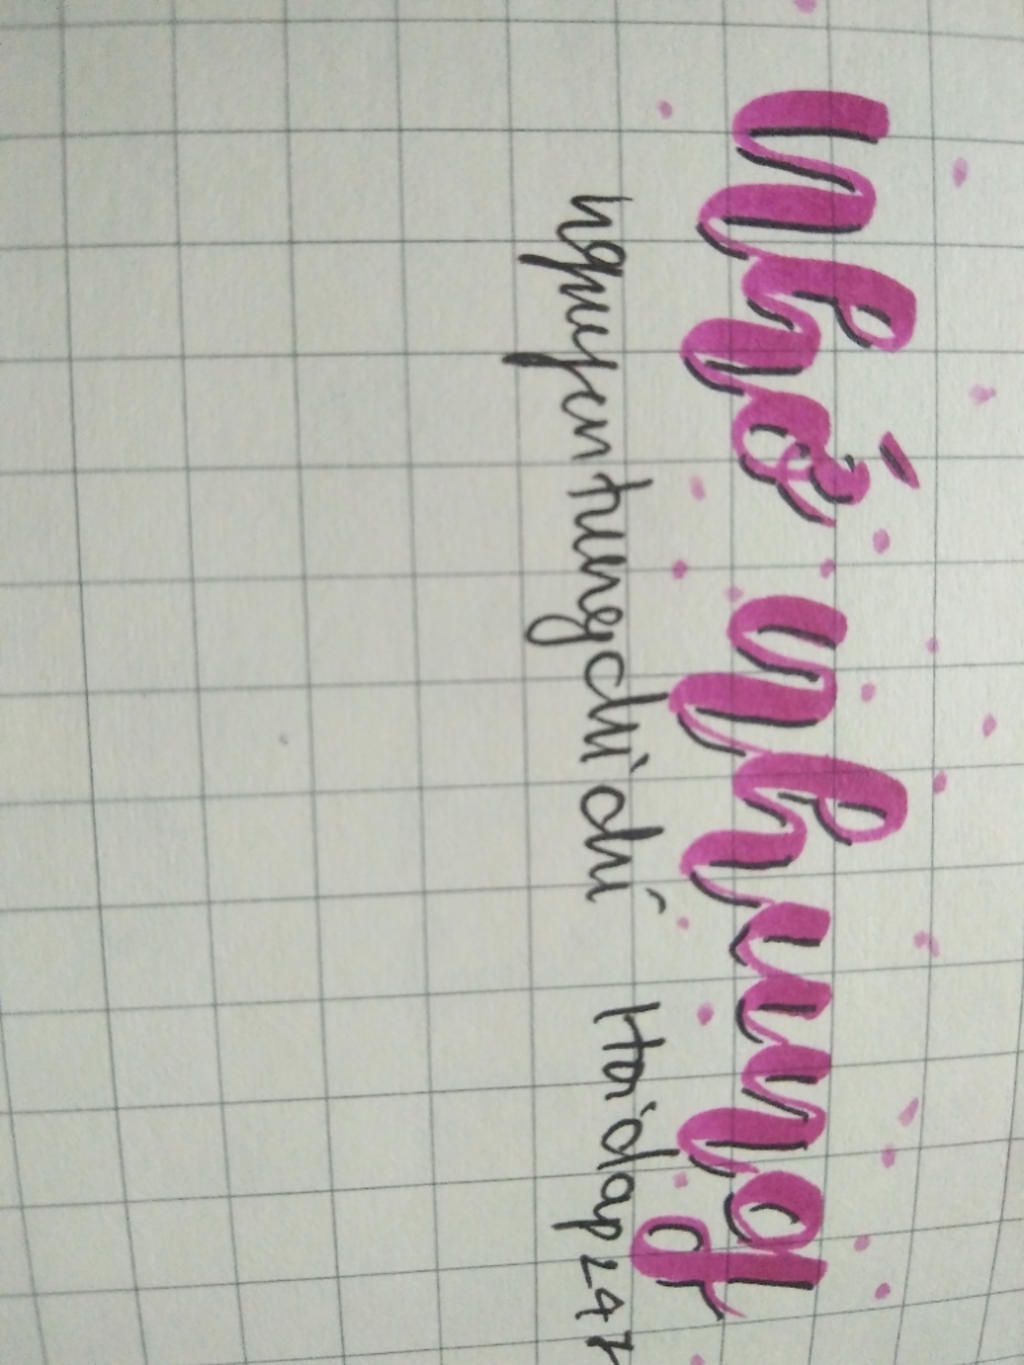 nhớ nhung
nguyentungchi chí Hoidap247